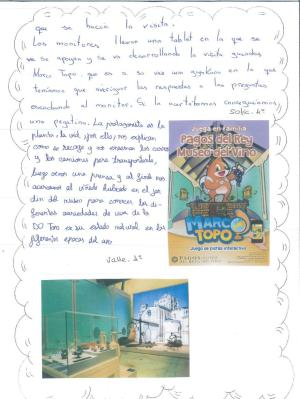 que se hacía la visita.
Los monitores llevan una tablet en la que se
ve se apoyan y se va desarrollando la visita guiados
Marco Topo, que es a su vez una gymkana en la que
teníamos que averiguar las respuestas a las preguntas
escuchando al monitor. Si la acertábamos conseguíamos
Sofía. 4º
una pegatina. La protagonista es la
planta: la vid, por ello, nos explican
como se recoge y nos enseñan los cestos
y los camiones para transportarla,
luego vimos una prensa y al final nos
acercamos al viñedo ubicado en el jar
dín del museo para conocer las di-
ferentes variedades de uva de la
DO Toro en su estado natural en las
diferentes épocas del año
Valle. 3º
Juego en familia
Pagos del Rey
Museo del Vino
MARCO
TOPO
Juego de pistas interactivo